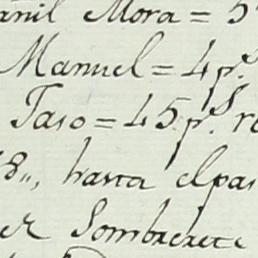 añil Mora = 5
Manuel = 4 p.s
Taso = 45. p.s re
8,, hasta el pas
er Sombrerete